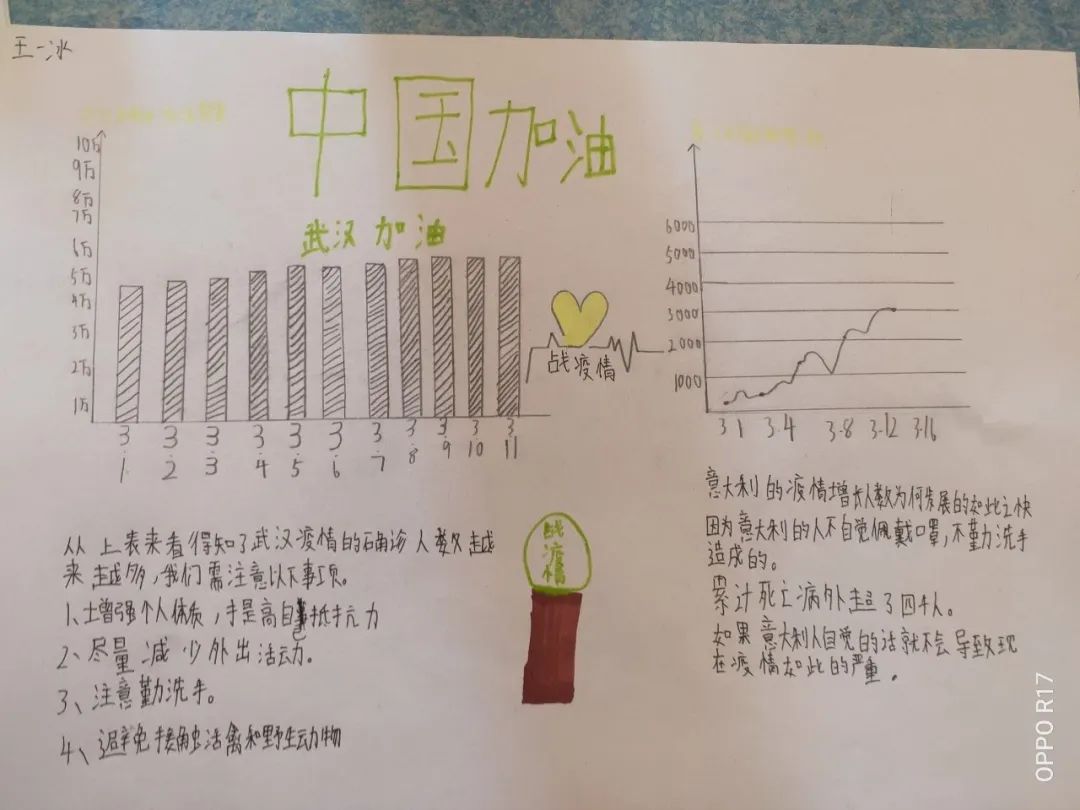 王一冰
中国加油
武汉加油
10万
9万
8万
7万
6万
5万
4万
3万
2万
1万
3.1
3.2
3.3
3.4
3.5
3.6
3.7
3.8
3.9
3.10
3.11
战疫情
6000
5000
4000
3000
2000
1000
3.1 3.4 3.8 3.12 3.16
从上表来看得知了武汉疫情的确诊人数越
来越多,我们需注意以下事项。
1、增强个人体质,提高自身抵抗力
2、尽量减少外出活动。
3、注意勤洗手。
4、避免接触活禽和野生动物
战疫情
意大利的疫情增长人数为何发展的如此之快
因为意大利的人不自觉佩戴口罩,不勤洗手
造成的。
累计死亡病例超过了四千人。
如果意大利人自觉的话就不会导致现
在疫情如此的严重。
OPPO R17